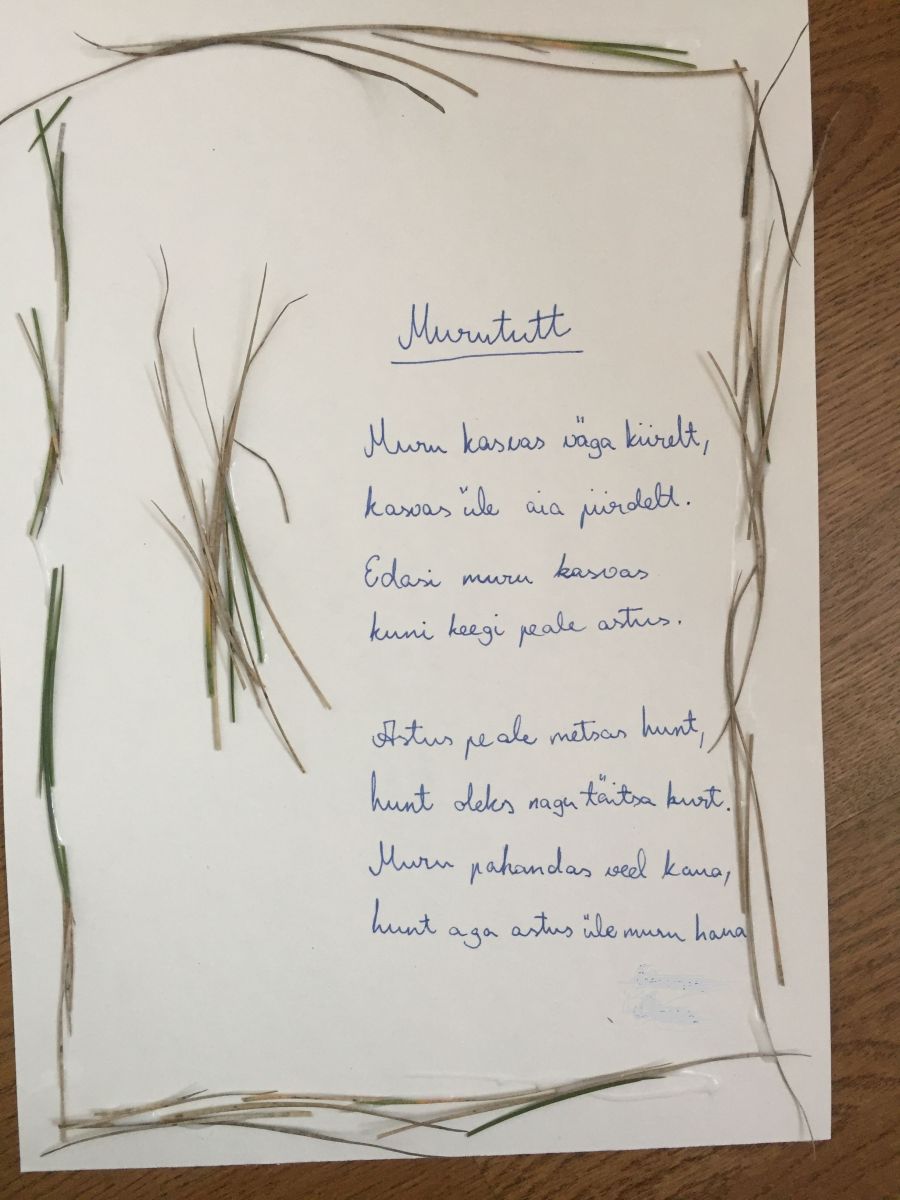 Murututt
Muru kasvas väga kiirelt,
kasvas üle aia piirdelt.
Edasi muru kasvas
kuni keegi peale astus.
Astus peale metsas hunt,
hunt oleks nagu täitsa kurt.
Muru pahandas veel kaua,
hunt aga astus üle muru haua